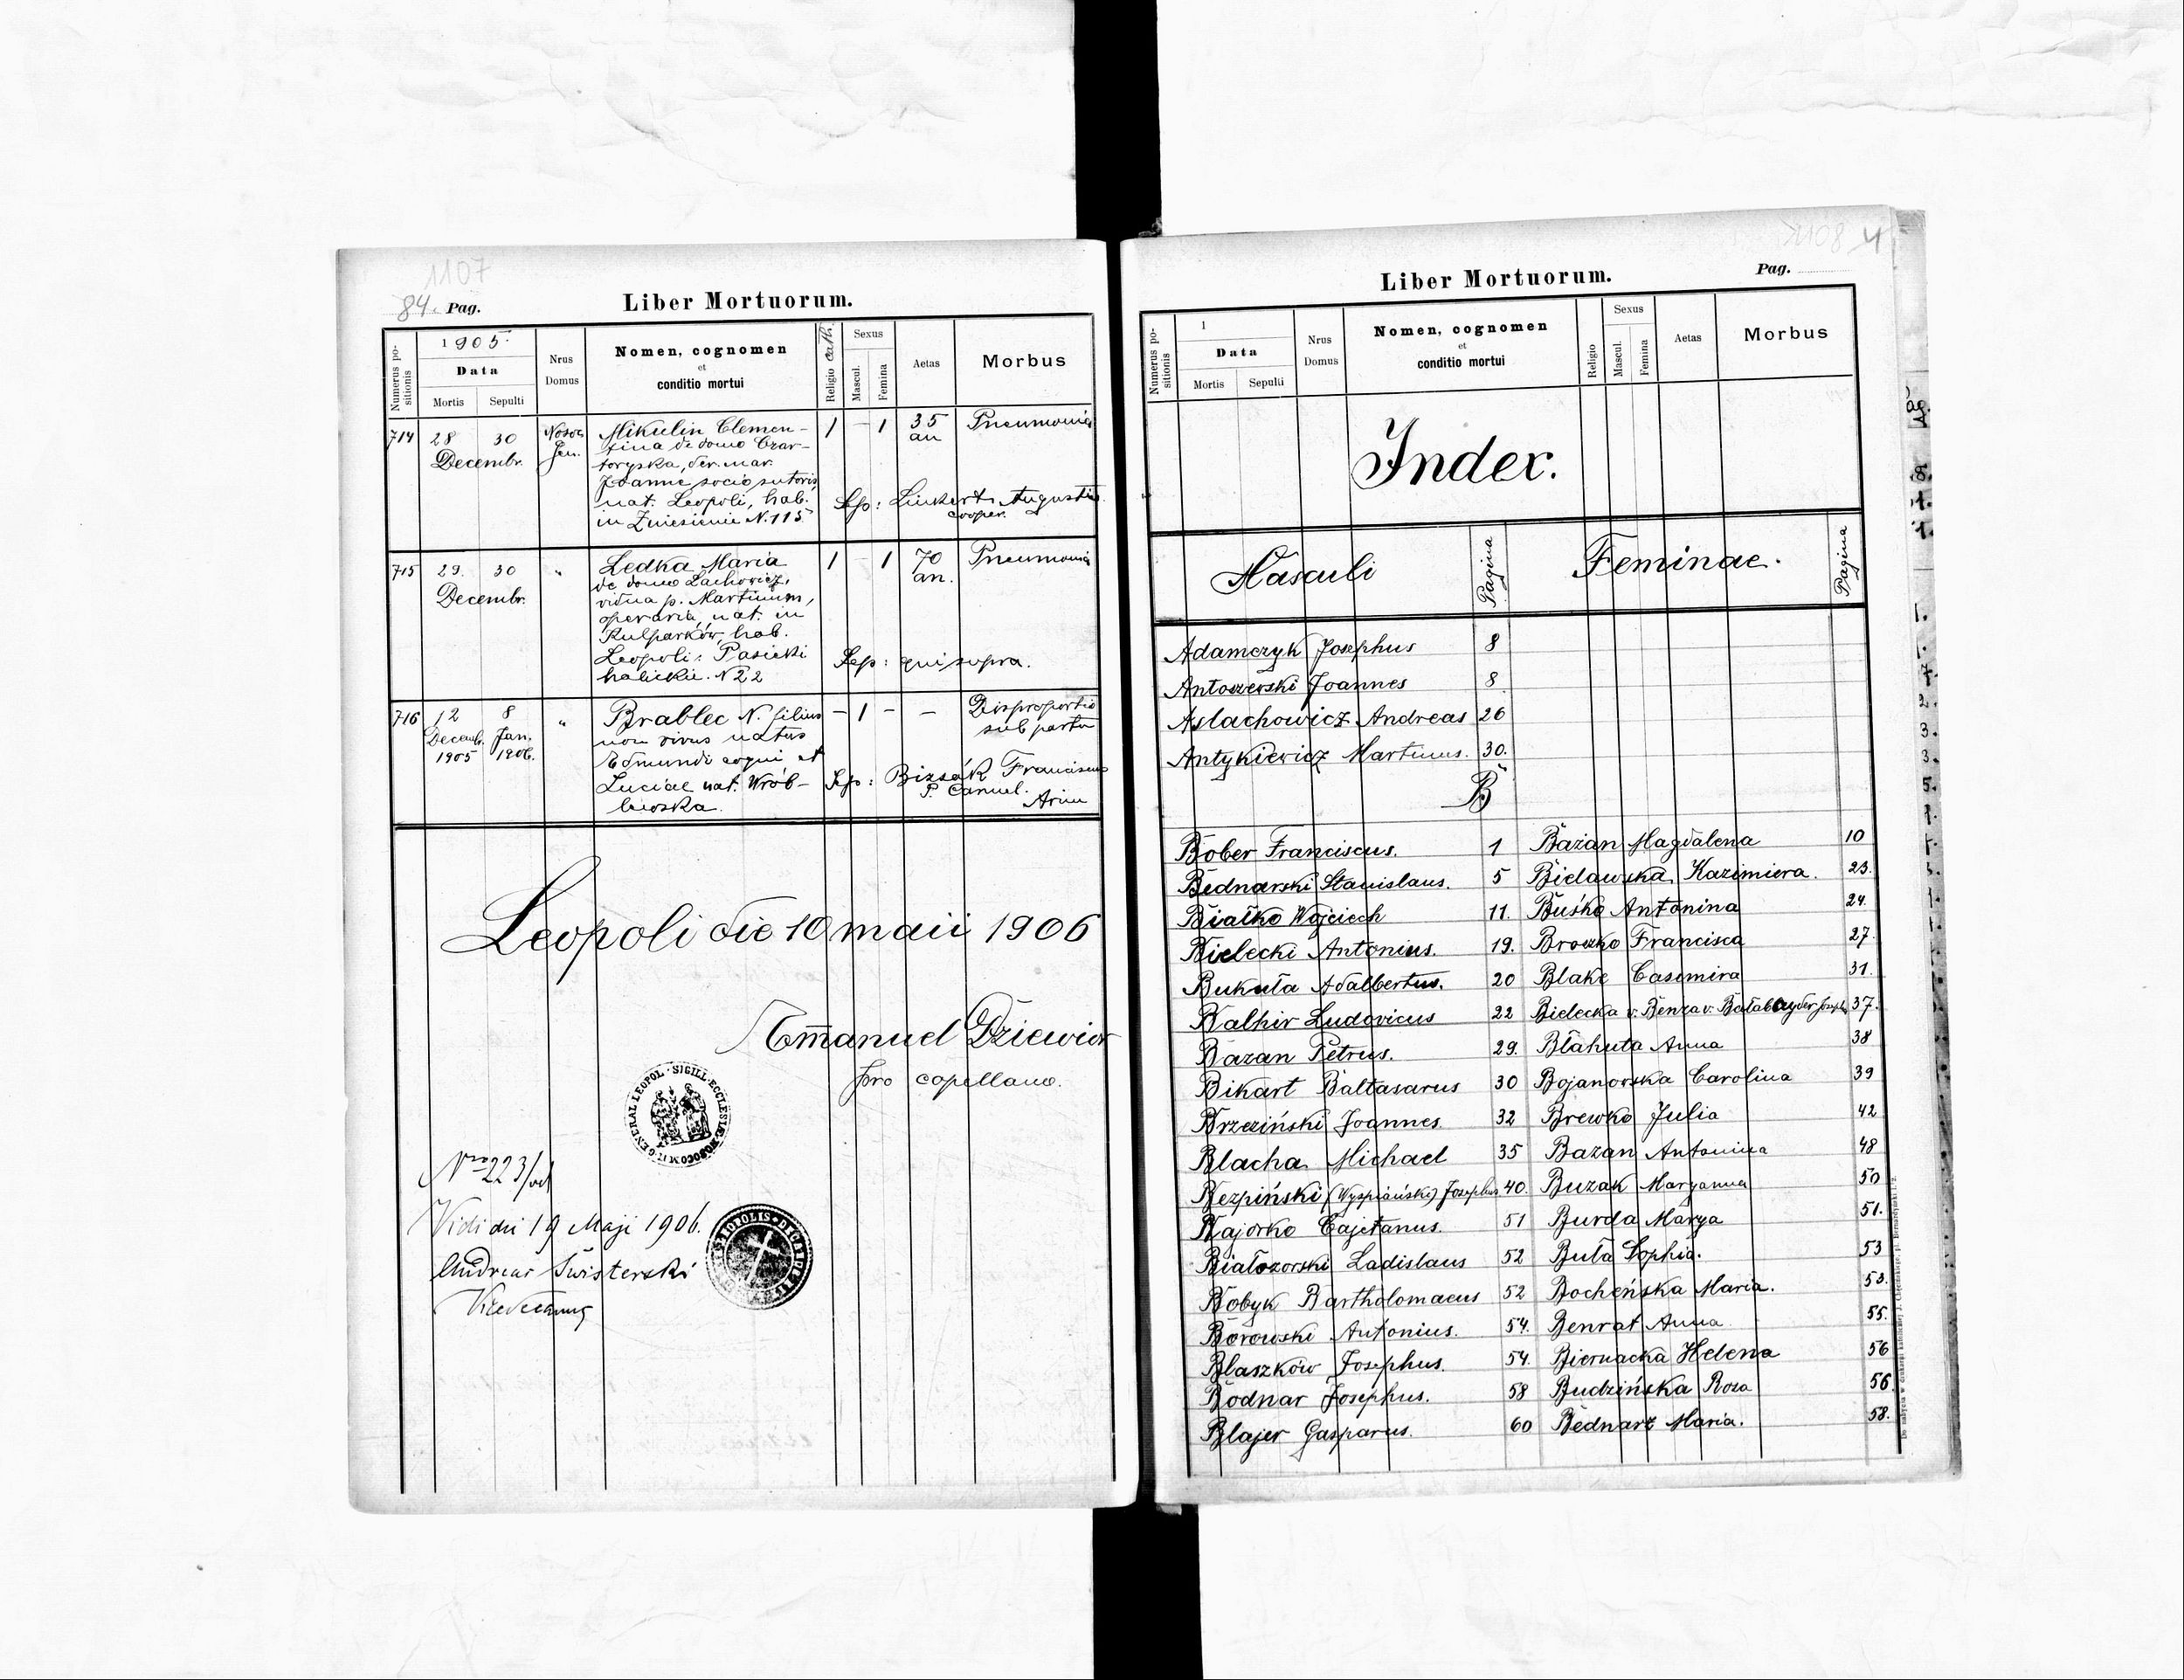 1107
84. Pag.
Liber Mortuorum.
Numerus positionis
1905.
Data
Mortis
Sepulti
Nrus Domus
Nomen, cognomen
et
conditio mortui
Religio cath.
Sexus
Mascul.
Femina
Aetas
Morbus
714 28 30 Decembr.
Mikulin Clemen-
tina de domo Czar-
toryska, der. mar.
Joanne socio sutoris,
nat. Leopoli, hab.
in Zniesienie N. 115
1 - 1 35 an Pneumonia
Sep: Linkert Augustin
cooper.
715 29. 30 Decembr. "
Ledka Maria
de domo Lachowicz,
vidua p. Martinum,
operaria, nat. in
Kulparków, hab.
Leopoli: Pasieki
halickie. N 22
1 - 1 70 an. Pneumonia
Sep: qui supra.
716 12 Decemb. 1905 8 Jan. 1906. "
Brablec N. filius
non vivus natus
Edmundi coqui et
Luciae nat. Wrób-
lewska.
- 1 - - Disproportio
sub partu
Sep: Bizsák Franciscus
P. Carmel.
Leopoli die 10 maii 1906
Emanuel Dziewior
pro capellano.
SIGILL·ECCLESIAE·NOSOCOMII·GENERAL·LEOPOL·
Nro 223/
Vidi die 19 Maji 1906.
Andreas Świsterski
Vicedecanus
Liber Mortuorum.
Pag.
Numerus positionis
1
Data
Mortis
Sepulti
Nrus Domus
Nomen, cognomen
et
conditio mortui
Religio
Sexus
Mascul.
Femina
Aetas
Morbus
Index.
Masculi Pagina Feminae. Pagina
Adamczyk Josephus 8
Antoszerski Joannes 8
Aslachowicz Andreas 26
Antykiewicz Martinus. 30.
B
Bober Franciscus. 1 Bazan Magdalena 10
Bednarski Stanislaus. 5 Bielawska Kazimiera. 23.
Białko Wojciech 11. Buśko Antonina 24.
Bielecki Antonius. 19. Broszko Francisca 27.
Bukuta Adalbertus. 20 Blake Casimira 31.
Balhir Ludovicus 22 Bielecka v. Benza v. 37.
Bazan Petrus. 29. Blahuta Anna 38
Bikart Baltasarus 30 Bojanowska Carolina 39
Brzeziński Joannes. 32 Brewko Julia 42
Blacha Michael 35 Bazan Antonina 48
Bezpiński (Wyspiański) Josephus 40. Buzak Maryanna 50
Bajorko Cajetanus. 51 Burda Marya 51.
Białozorski Ladislaus 52 Buta Sophia. 53
Bobyk Bartholomaeus 52 Bocheńska Maria. 53.
Borowski Antonius. 54. Benrat Anna 55.
Blaszków Josephus. 54. Biernacka Helena 56
Bodnar Josephus. 58 Budzińska Roza 56.
Blajer Gasparus. 60 Bednarz Maria. 58.